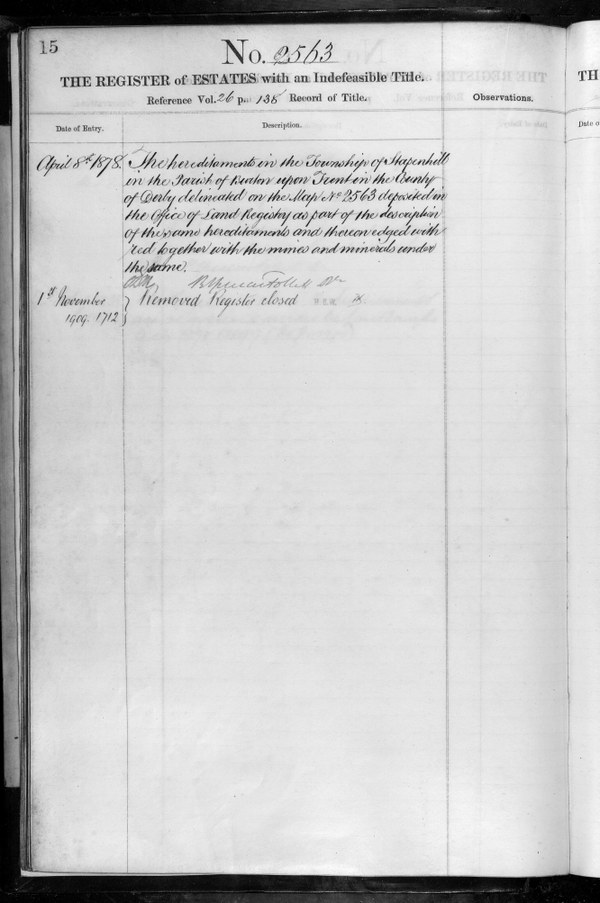 15
No. 2563
THE REGISTER of ESTATES with an Indefeasible Title.
Reference Vol. 26 p. 135 Record of Title.
Observations.
Date of Entry.
Description.
April 8th 1878.
The hereditaments in the Township of Stapenhill
in the Parish of Burton upon Trent in the County
of Derby delineated on the Map No 2563 deposited in
the Office of Land Registry as part of the description
of the same hereditaments and thereon edged with
red together with the mines and minerals under
the same.
1st November
1909. 1712
Removed Register closed
TH
Date o